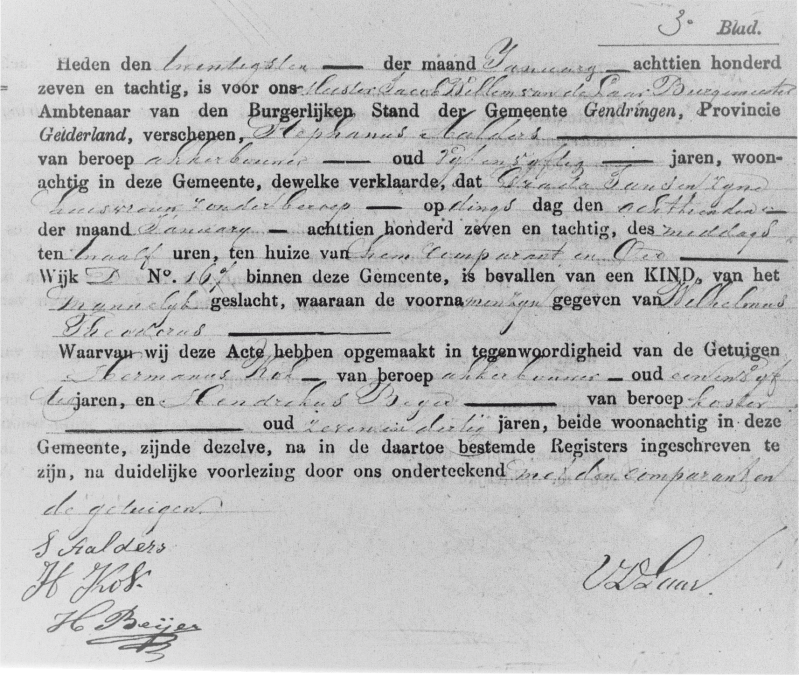 3e Blad.
Heden den twintigsten — der maand January — achttien honderd
zeven en tachtig, is voor ons Meester Jacob Willem van de Laar Burgemeester
Ambtenaar van den Burgerlijken Stand der Gemeente Gendringen, Provincie
Gelderland, verschenen, Stephanus Aalders
van beroep akkerbouwer — oud vyf en vyftig — jaren, woon-
achtig in deze Gemeente, dewelke verklaarde, dat Grada Jansen zyne
huisvrouw zonder beroep — op dings dag den achttienden —
der maand January — achttien honderd zeven en tachtig, des middags
ten twaalf uren, ten huize van hem comparant en Oer
Wijk D No. 167 binnen deze Gemeente, is bevallen van een KIND, van het
mannelyk geslacht, waaraan de voornamen zyn gegeven van Wilhelmus
Theodorus
Waarvan wij deze Acte hebben opgemaakt in tegenwoordigheid van de Getuigen
Hermanus Kok — van beroep akkerbouwer — oud een en vyf
tig jaren, en Hendrikus Beyer — van beroep koster
— oud zeven en dertig jaren, beide woonachtig in deze
Gemeente, zijnde dezelve, na in de daartoe bestemde Registers ingeschreven te
zijn, na duidelijke voorlezing door ons onderteekend met den comparant en
de getuigen.
S Aalders
H Kok.
H Beijer
VDLaar.